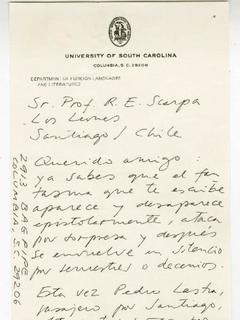 UNIVERSITY OF SOUTH CAROLINA
COLUMBIA, S. C. 29208
DEPARTMENT OF FOREIGN LANGUAGES
AND LITERATURES
Sr. Prof. R. E. Scarpa
Los Leones
Santiago / Chile
Querido amigo:
ya sabes que el fan
tasma que te escribe
aparece y desaparece
epistolarmente, ataca
por sorpresa y después
se envuelve en silencio
por semestres o decenios.
Esta vez Pedro Lastra,
pasajero por Santiago,
2913 BAGPIPE
COLUMBIA, SC 29206